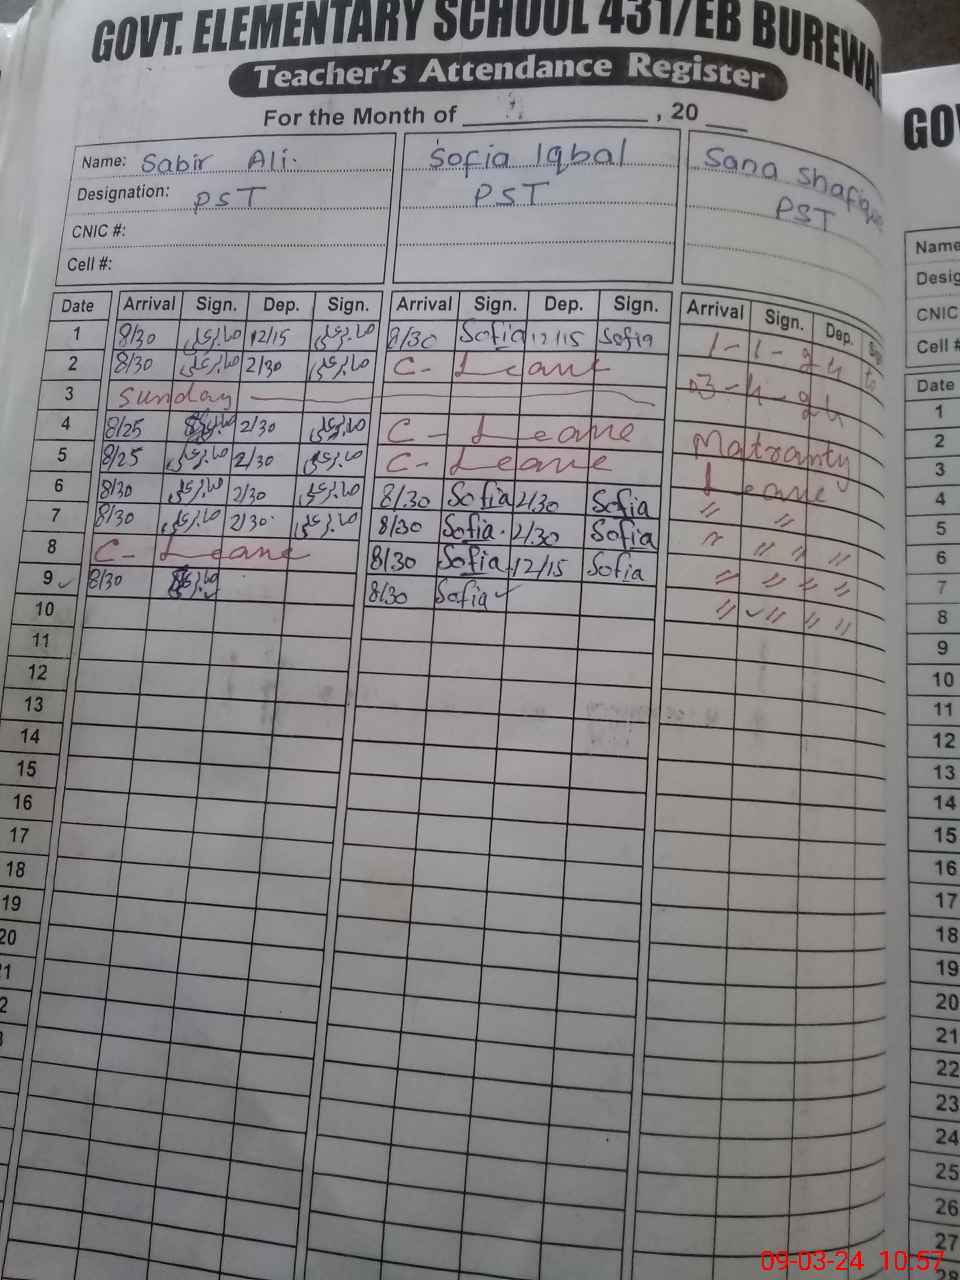 GOVT. ELEMENTARY SCHOOL 431/EB BUREWA
Teacher's Attendance Register
For the Month of , 20
Name: Sabir Ali. Sofia Iqbal Sana Shafique
Designation: PST PST PST
CNIC #:
Cell #:
Date Arrival Sign. Dep. Sign. Arrival Sign. Dep. Sign. Arrival Sign. Dep.
1 8/30 12/15 8/30 Sofia 12/15 Sofia 1-1-24 to
2 8/30 2/30 C- Leave 03-4-24
3 Sunday
4 8/25 2/30 C- Leave Matranty
5 8/25 2/30 C- Leave Leave
6 8/30 2/30 8/30 Sofia 2/30 Sofia " "
7 8/30 2/30. 8/30 Sofia. 2/30 Sofia " " " "
8 C- Leave 8/30 Sofia 12/15 Sofia " " " "
9 ✓ 8/30 8/30 Sofia ✓ " ✓ " " "
10
11
12
13
14
15
16
17
18
19
20
1
2
3
GO
Name
Desig
CNIC #
Cell #
Date
1
2
3
4
5
6
7
8
9
10
11
12
13
14
15
16
17
18
19
20
21
22
23
24
25
26
27
28
09-03-24 10:57